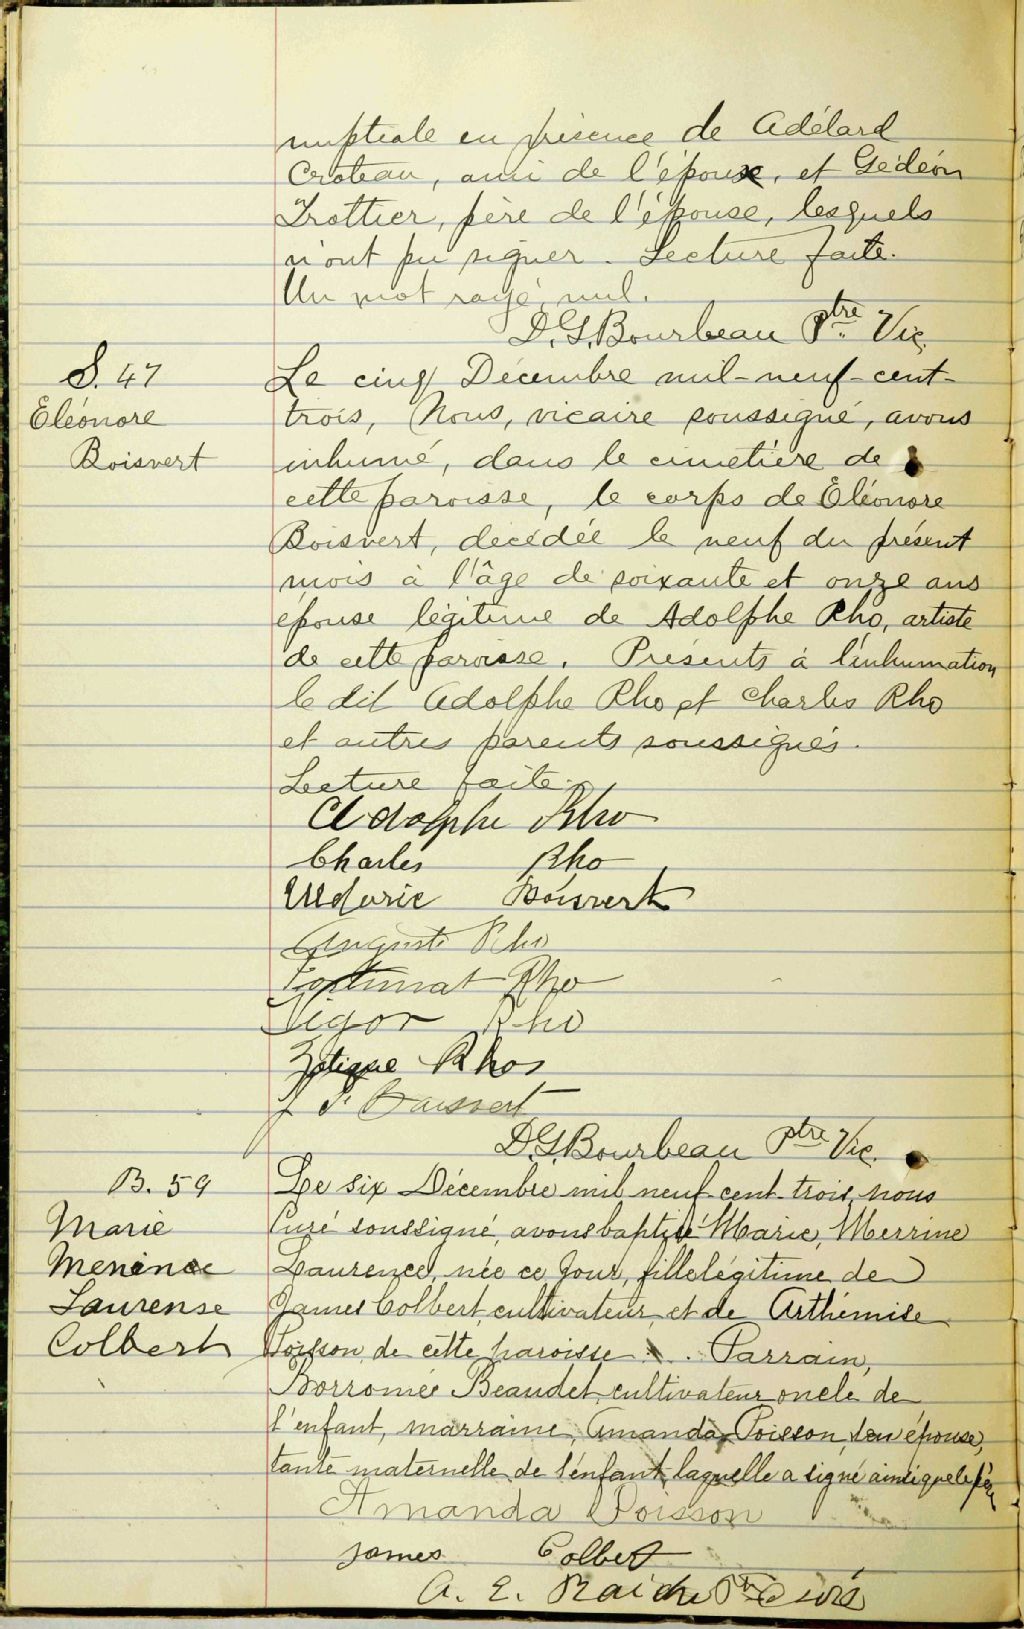 nuptiale en présence de Adélard
Croteau, ami de l'épouxe, et Gédéon
Trottier, père de l'épouse, lesquels
n'ont pu signer. Lecture faite.
Un mot rayé nul.
D.G. Bourbeau Ptre Vic.
S. 47
Eléonore
Boisvert
Le cinq Décembre mil-neuf-cent-
trois, Nous, vicaire soussigné, avons
inhumé, dans le cimetière de
cette paroisse, le corps de Eléonore
Boisvert, décédée le neuf du présent
mois à l'âge de soixante et onze ans
épouse légitime de Adolphe Rho, artiste
de cette paroisse. Présents à l'inhumation
le dit Adolphe Rho et Charles Rho
et autres parents soussignés.
Lecture faite.
Adolphe Rho
Charles Rho
Uldoric Boisvert
Auguste Rho
Fortunat Rho
Sigor Rho
Zotique Rho
J P Boisvert
D.G. Bourbeau Ptre Vic.
B. 59
Marie
Menence
Laurense
Colbert
Le six Décembre mil neuf-cent-trois, nous
Curé soussigné, avons baptisé Marie, Merrine
Laurence, née ce jour, fille légitime de
James Colbert, cultivateur, et de Arthémise
Poisson de cette paroisse. Parrain,
Borromée Beaudet, cultivateur oncle de
l'enfant, marraine, Amanda Poisson, son épouse,
tante maternelle de l'enfant, laquelle a signé ainsi que le père
Amanda Poisson
James Colbert
A. E. Raiche Ptre Curé